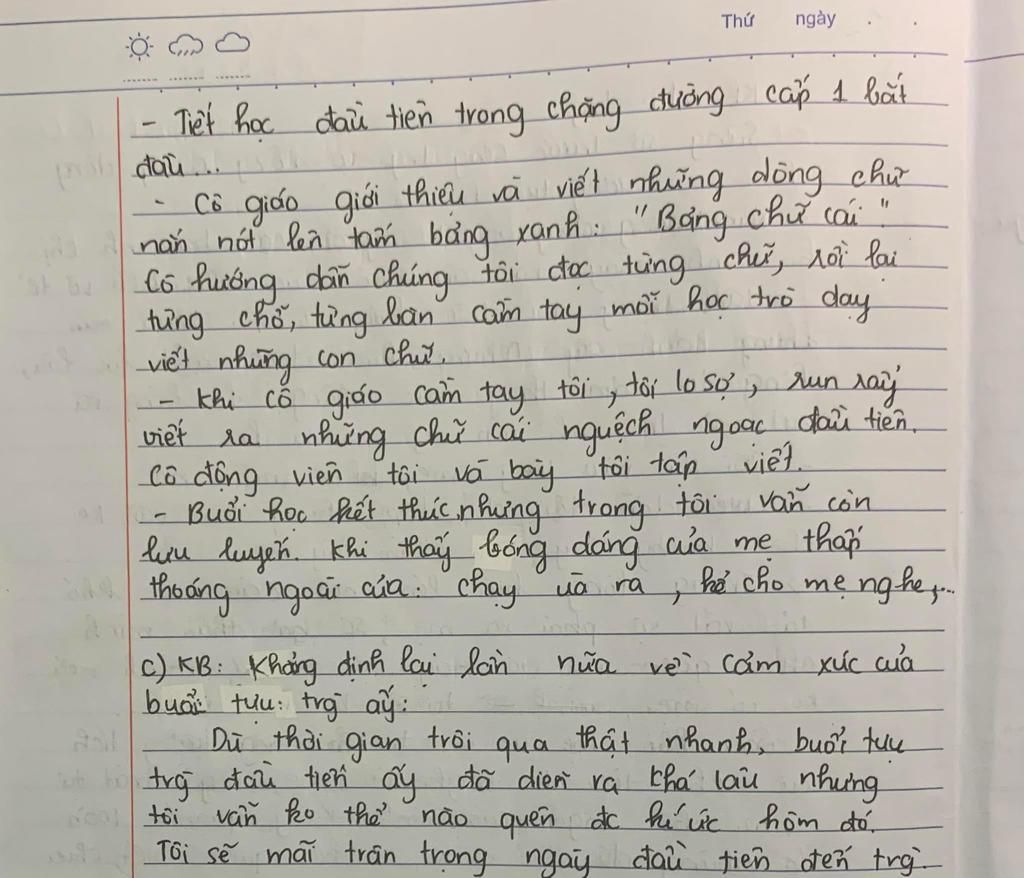 Thứ ngày . .
- Tiết học đầu tiên trong chặng đường cấp 1 bắt
đầu...
- Cô giáo giới thiệu và viết những dòng chữ
nắn nót lên tấm bảng xanh: "Bảng chữ cái"
Cô hướng dẫn chúng tôi đọc từng chữ, rồi lại
từng chỗ, từng bàn cầm tay mỗi học trò dạy
viết những con chữ.
- Khi cô giáo cầm tay tôi, tôi lo sợ, run rẩy
viết ra những chữ cái nguệch ngoạc đầu tiên.
Cô động viên tôi và bày tôi tập viết.
- Buổi học kết thúc, nhưng trong tôi vẫn còn
lưu luyến. Khi thấy bóng dáng của mẹ thấp
thoáng ngoài cửa: chạy ùa ra, kể cho mẹ nghe,...
c) KB: Khẳng định lại lần nữa về cảm xúc của
buổi tựu: trg ấy:
Dù thời gian trôi qua thật nhanh, buổi tựu
trg đầu tiên ấy đã diễn ra khá lâu nhưng
tôi vẫn ko thể nào quên đc kí ức hôm đó.
Tôi sẽ mãi trân trọng ngày đầu tiên đến trg.